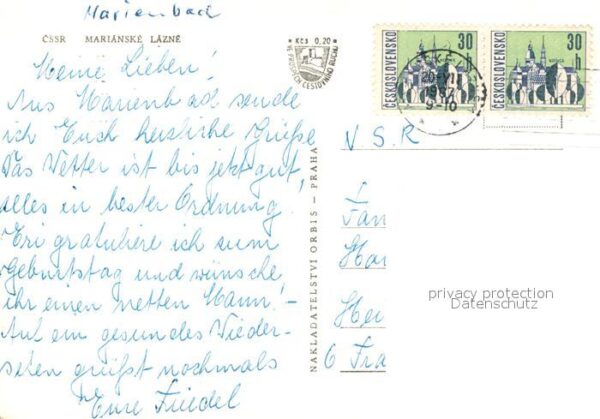 Marienbad
ČSSR MARIÁNSKÉ LÁZNĚ
Meine Lieben!
Aus Marienbad sende
ich Euch herzliche Grüße.
Das Wetter ist bis jetzt gut,
alles in bester Ordnung.
Eri gratuliere ich zum
Geburtstag und wünsche
ihr einen netten Mann! -
Auf ein gesundes Wieder-
sehen grüßt nochmals
Eure Friedel
Kčs 0,20
VE PROSPĚCH CESTOVNÍHO RUCHU
NAKLADATELSTVÍ ORBIS — PRAHA
ČESKOSLOVENSKO 30 h
ČESKOSLOVENSKO 30 h
1967
V.S.R
Fam
Ha
Hei
6 Fra
privacy protection
Datenschutz